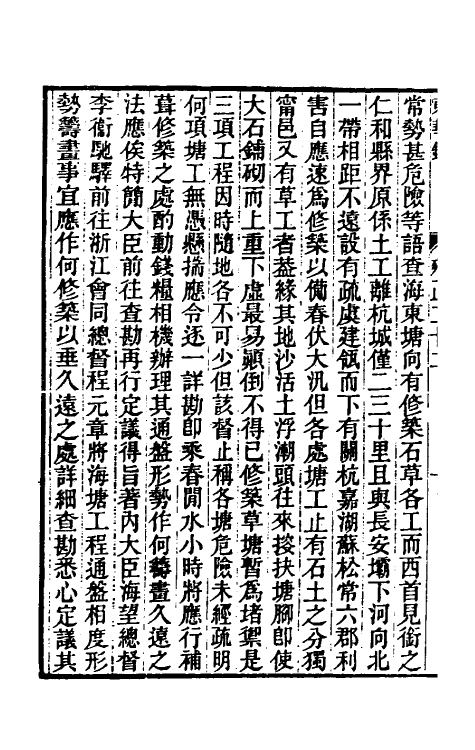 常勢甚危險等語查海東塘向有修築石草各工而西首見銜之
仁和縣界原係土工離杭城僅二三十里且與長安壩下河向北
一帶相距不遠設有疏虞建瓴而下有關杭嘉湖蘇松常六郡利
害自應速爲修築以備春伏大汛但各處塘工止有石土之分獨
甯邑又有草工者葢緣其地沙活土浮潮頭往來㨰抉塘腳即使
大石鋪砌而上重下虛最易顚倒不得已修築草塘暫爲堵禦是
三項工程因時隨地各不可少但該督止稱各塘危險未經疏明
何項塘工無憑懸揣應令逐一詳勘即乘春閒水小時將應行補
葺修築之處酌動錢糧相機辦理其通盤形勢作何籌畫久遠之
法應俟特簡大臣前往查勘再行定議得旨著內大臣海望總督
李衞馳驛前往浙江會同總督程元章將海塘工程通盤相度形
勢籌畫事宜應作何修築以垂久遠之處詳細查勘悉心定議其